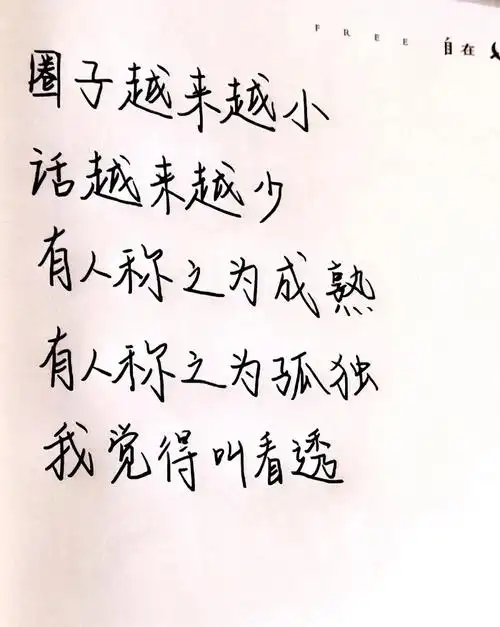 FREE 自在
圈子越来越小
话越来越少
有人称之为成熟
有人称之为孤独
我觉得叫看透